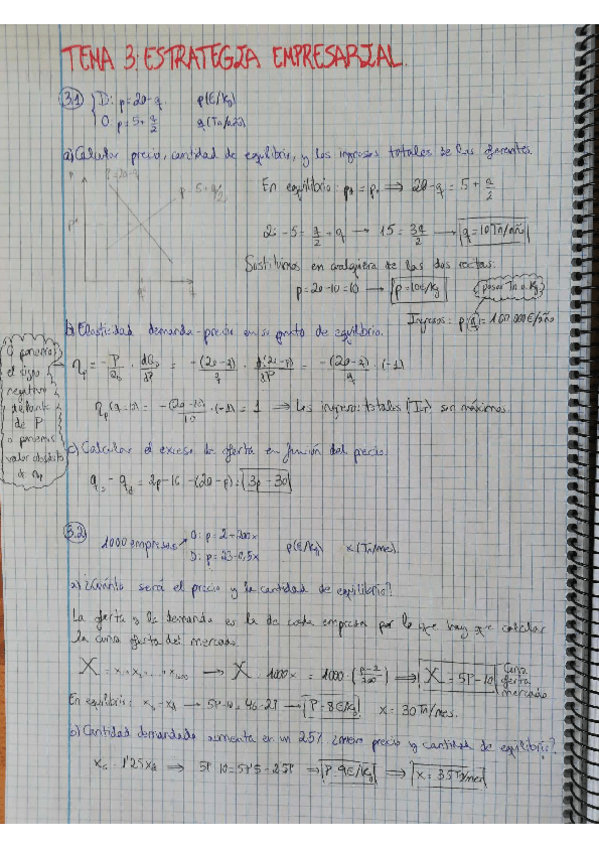 TEMA 3: ESTRATEGIA EMPRESARIAL.
3.1) D: p = 20 - q p(€/Kg)
O: p = 5 + q/2 q(Tn/año)
a) Calcular precio, cantidad de equilibrio, y los ingresos totales de los oferentes
P p = 20-q
En equilibrio: = ⟹ 20 - q = 5 + q/2
p = 5 + q/2
q → 15 = 3q/2 → q = 10 Tn/año
Sustituimos en cualquiera de las dos rectas:
p = 20 - 10 = 10 → p = 10€/Kg
pasar Tn a Kg
Ingresos: p·q = 100.000€/año
b) Elasticidad demanda-precio en su punto de equilibrio.
O ponemos
el signo
negativo
delante
de P
o ponemos
valor absoluto
de
= -(20-q)/q · (-1)
= -(20-10)/10 · (-1) = 1 → Los ingresos totales (IT) son máximos
c) Calcular el exceso de oferta en función del precio
= 2p - 10 - (20 - p) = 3p - 30
3.2) 1000 empresas O: p = 2 + 200x p(€/Kg) x(Tn/mes)
D: p = 23 - 0,5x
a) ¿Cuánto será el precio y la cantidad de equilibrio?
La oferta y la demanda es la de cada empresa por lo que hay que calcular
la curva oferta del mercado.
→ X = 1000x = 1000·(p-2/200) ⟹ X = 5P - 10 Curva oferta mercado
En equilibrio: → 5P - 10 = 46 - 2P → P = 8€/Kg x = 30 Tn/mes.
b) Cantidad demandada aumenta en un 25% ¿nuevo precio y cantidad de equilibrio?
→ 5P - 10 = 57'5 - 2'5P → P = 9€/Kg → x = 35 Tn/mes